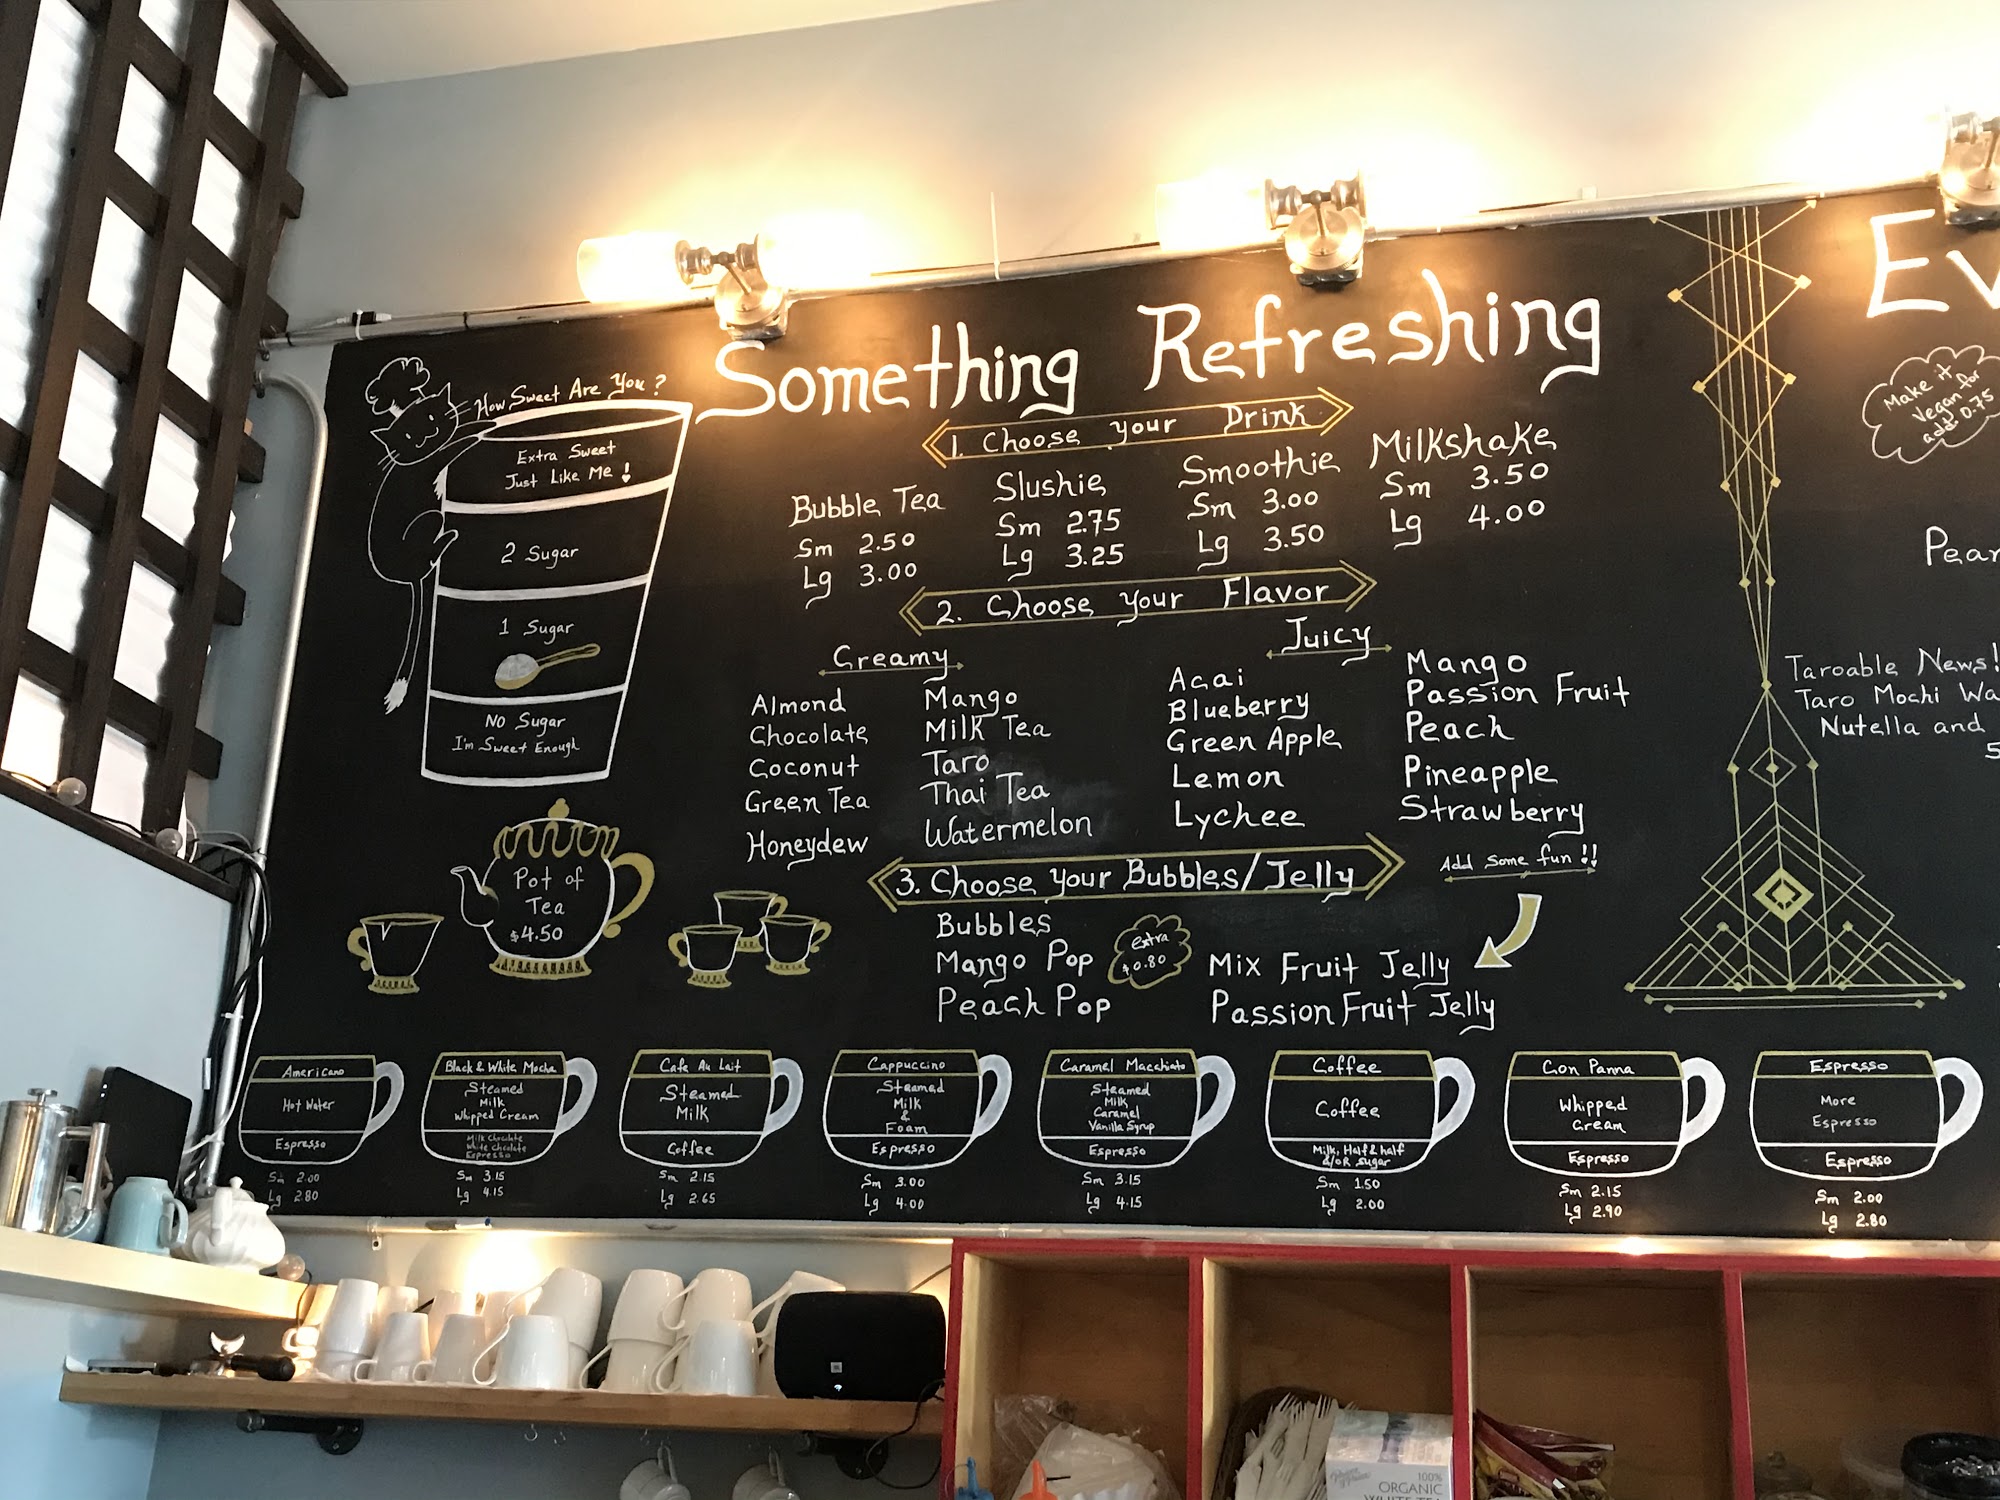 Something Refreshing
How Sweet Are You?
Extra Sweet
Just Like Me!
2 Sugar
1 Sugar
No Sugar
I'm Sweet Enough
Pot of
Tea
$4.50
1. Choose your Drink
Bubble Tea
Sm 2.50
Lg 3.00
Slushie
Sm 2.75
Lg 3.25
Smoothie
Sm 3.00
Lg 3.50
Milkshake
Sm 3.50
Lg 4.00
2. Choose your Flavor
Creamy
Almond
Chocolate
Coconut
Green Tea
Honeydew
Mango
Milk Tea
Taro
Thai Tea
Watermelon
Juicy
Acai
Blueberry
Green Apple
Lemon
Lychee
Mango
Passion Fruit
Peach
Pineapple
Strawberry
3. Choose your Bubbles/Jelly
Add some fun!!
Bubbles
Mango Pop
Peach Pop
extra
$0.80
Mix Fruit Jelly
Passion Fruit Jelly
Make it
Vegan for
add. 0.75
Taroable News!
Taro Mochi
Nutella and
Americano
Hot Water
Espresso
Sm 2.00
Lg 2.80
Black & White Mocha
Steamed
Milk
Whipped Cream
Milk Chocolate
White Chocolate
Espresso
Sm 3.15
Lg 4.15
Cafe Au Lait
Steamed
Milk
Coffee
Sm 2.15
Lg 2.65
Cappuccino
Steamed
Milk
&
Foam
Espresso
Sm 3.00
Lg 4.00
Caramel Macchiato
Steamed
Milk
Caramel
Vanilla Syrup
Espresso
Sm 3.15
Lg 4.15
Coffee
Coffee
Milk, Half & half
&/OR sugar
Sm 1.50
Lg 2.00
Con Panna
Whipped
Cream
Espresso
Sm 2.15
Lg 2.90
Espresso
More
Espresso
Espresso
Sm 2.00
Lg 2.80
JBL
100%
ORGANIC
WHITE TEA